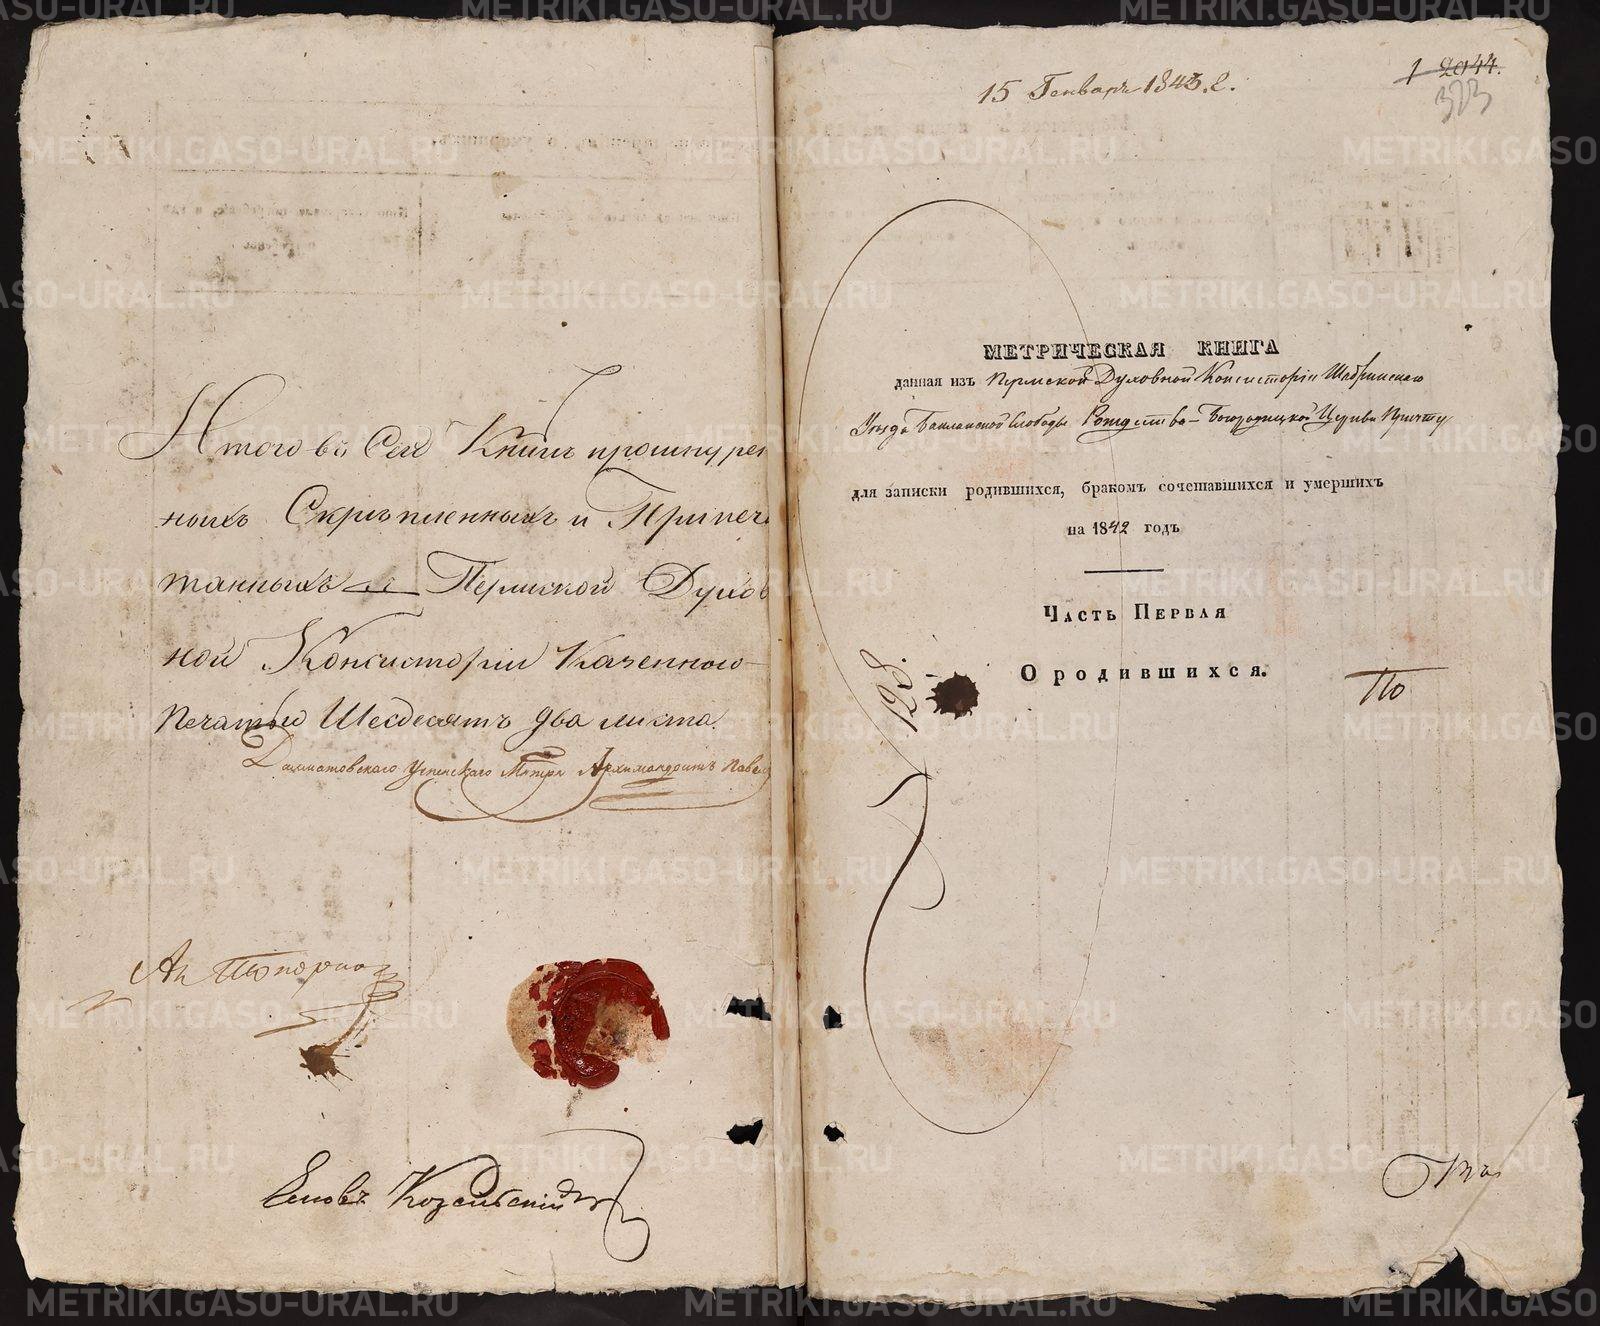 Итого въ Сей Книгѣ прошнурен
ныхъ Скрѣпленныхъ и Припеча
танныхъ Пермской Духов
ной Консисторіи Казенною
Печатью Шесдесятъ два листа.
Далматовскаго Успенскаго Мнтря Архимандритъ Павел
Козельскій
15 Генваря 1843.
1 2044.
323
МЕТРИЧЕСКАЯ КНИГА
данная изъ Пермской Духовной Консисторіи Шадринскаго
Уѣзда Бакланской слободы Рождество-Богородицкой Церкви Причту
для записки родившихся, бракомъ сочетавшихся и умершихъ
на 1842 годъ
Часть Первая
О родившихся.
128.
По
METRIKI.GASO-URAL.RU